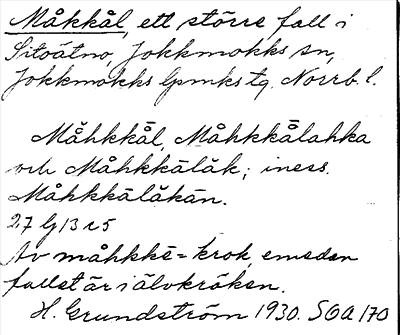 Måkkål, ett större fall i
Sitoätno, Jokkmokks sn,
Jokkmokks lpmks tg. Norrb. l.
Måhkkål, Måhkkålahka
och Måhkkålåk; iness.
Måhkkålåkån.
27 G 13 r 5
Av måhkkē = krok, emedan
fallet är i älvkröken.
H. Grundström 1930. SOA 170